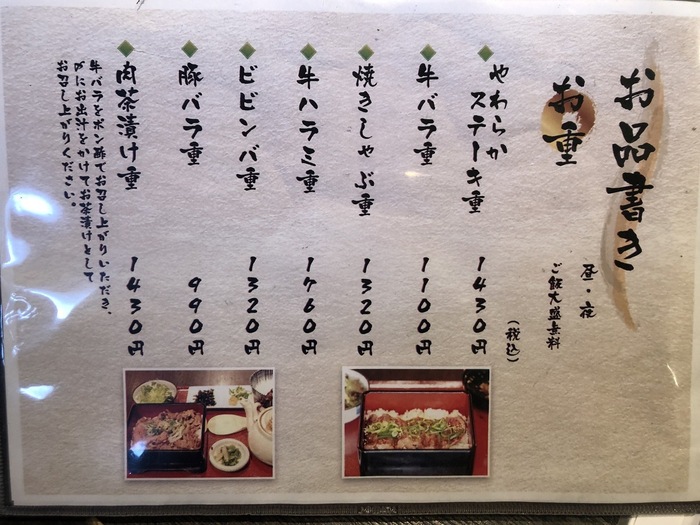 お品書き
お重
昼・夜
ご飯大盛無料
(税込)
やわらか
ステーキ重
1430円
牛バラ重
1100円
焼きしゃぶ重
1320円
牛ハラミ重
1760円
ビビンバ重
1320円
豚バラ重
990円
肉茶漬け重
1430円
牛バラをポン酢でお召し上がりいただき、
〆にお出汁をかけてお茶漬けとして
お召し上がりください。